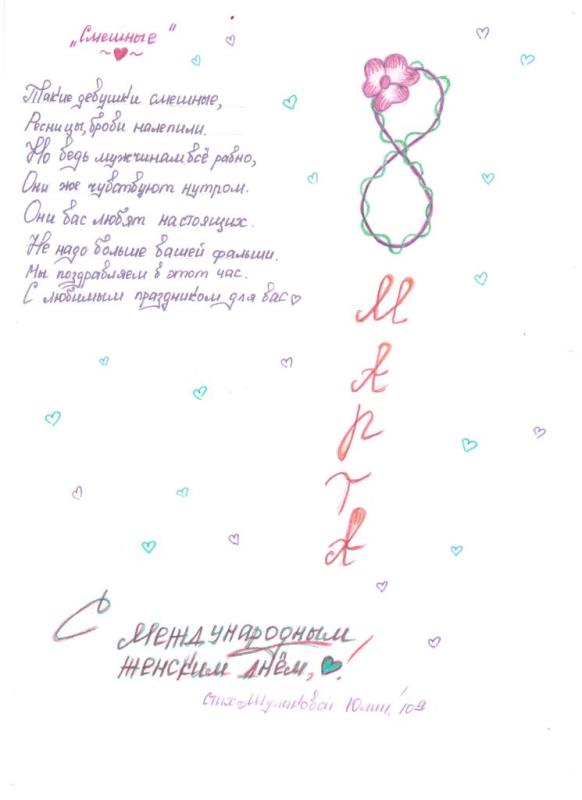 „Смешные"
Такие девушки смешные,
Ресницы, брови налепили.
Но ведь мужчинам всё равно,
Они же чувствуют нутром.
Они вас любят настоящих.
Не надо больше вашей фальши.
Мы поздравляем в этот час.
С любимым праздником для вас
8
М
А
Р
Т
А
С международным
женским днём, !
стих Юлии,